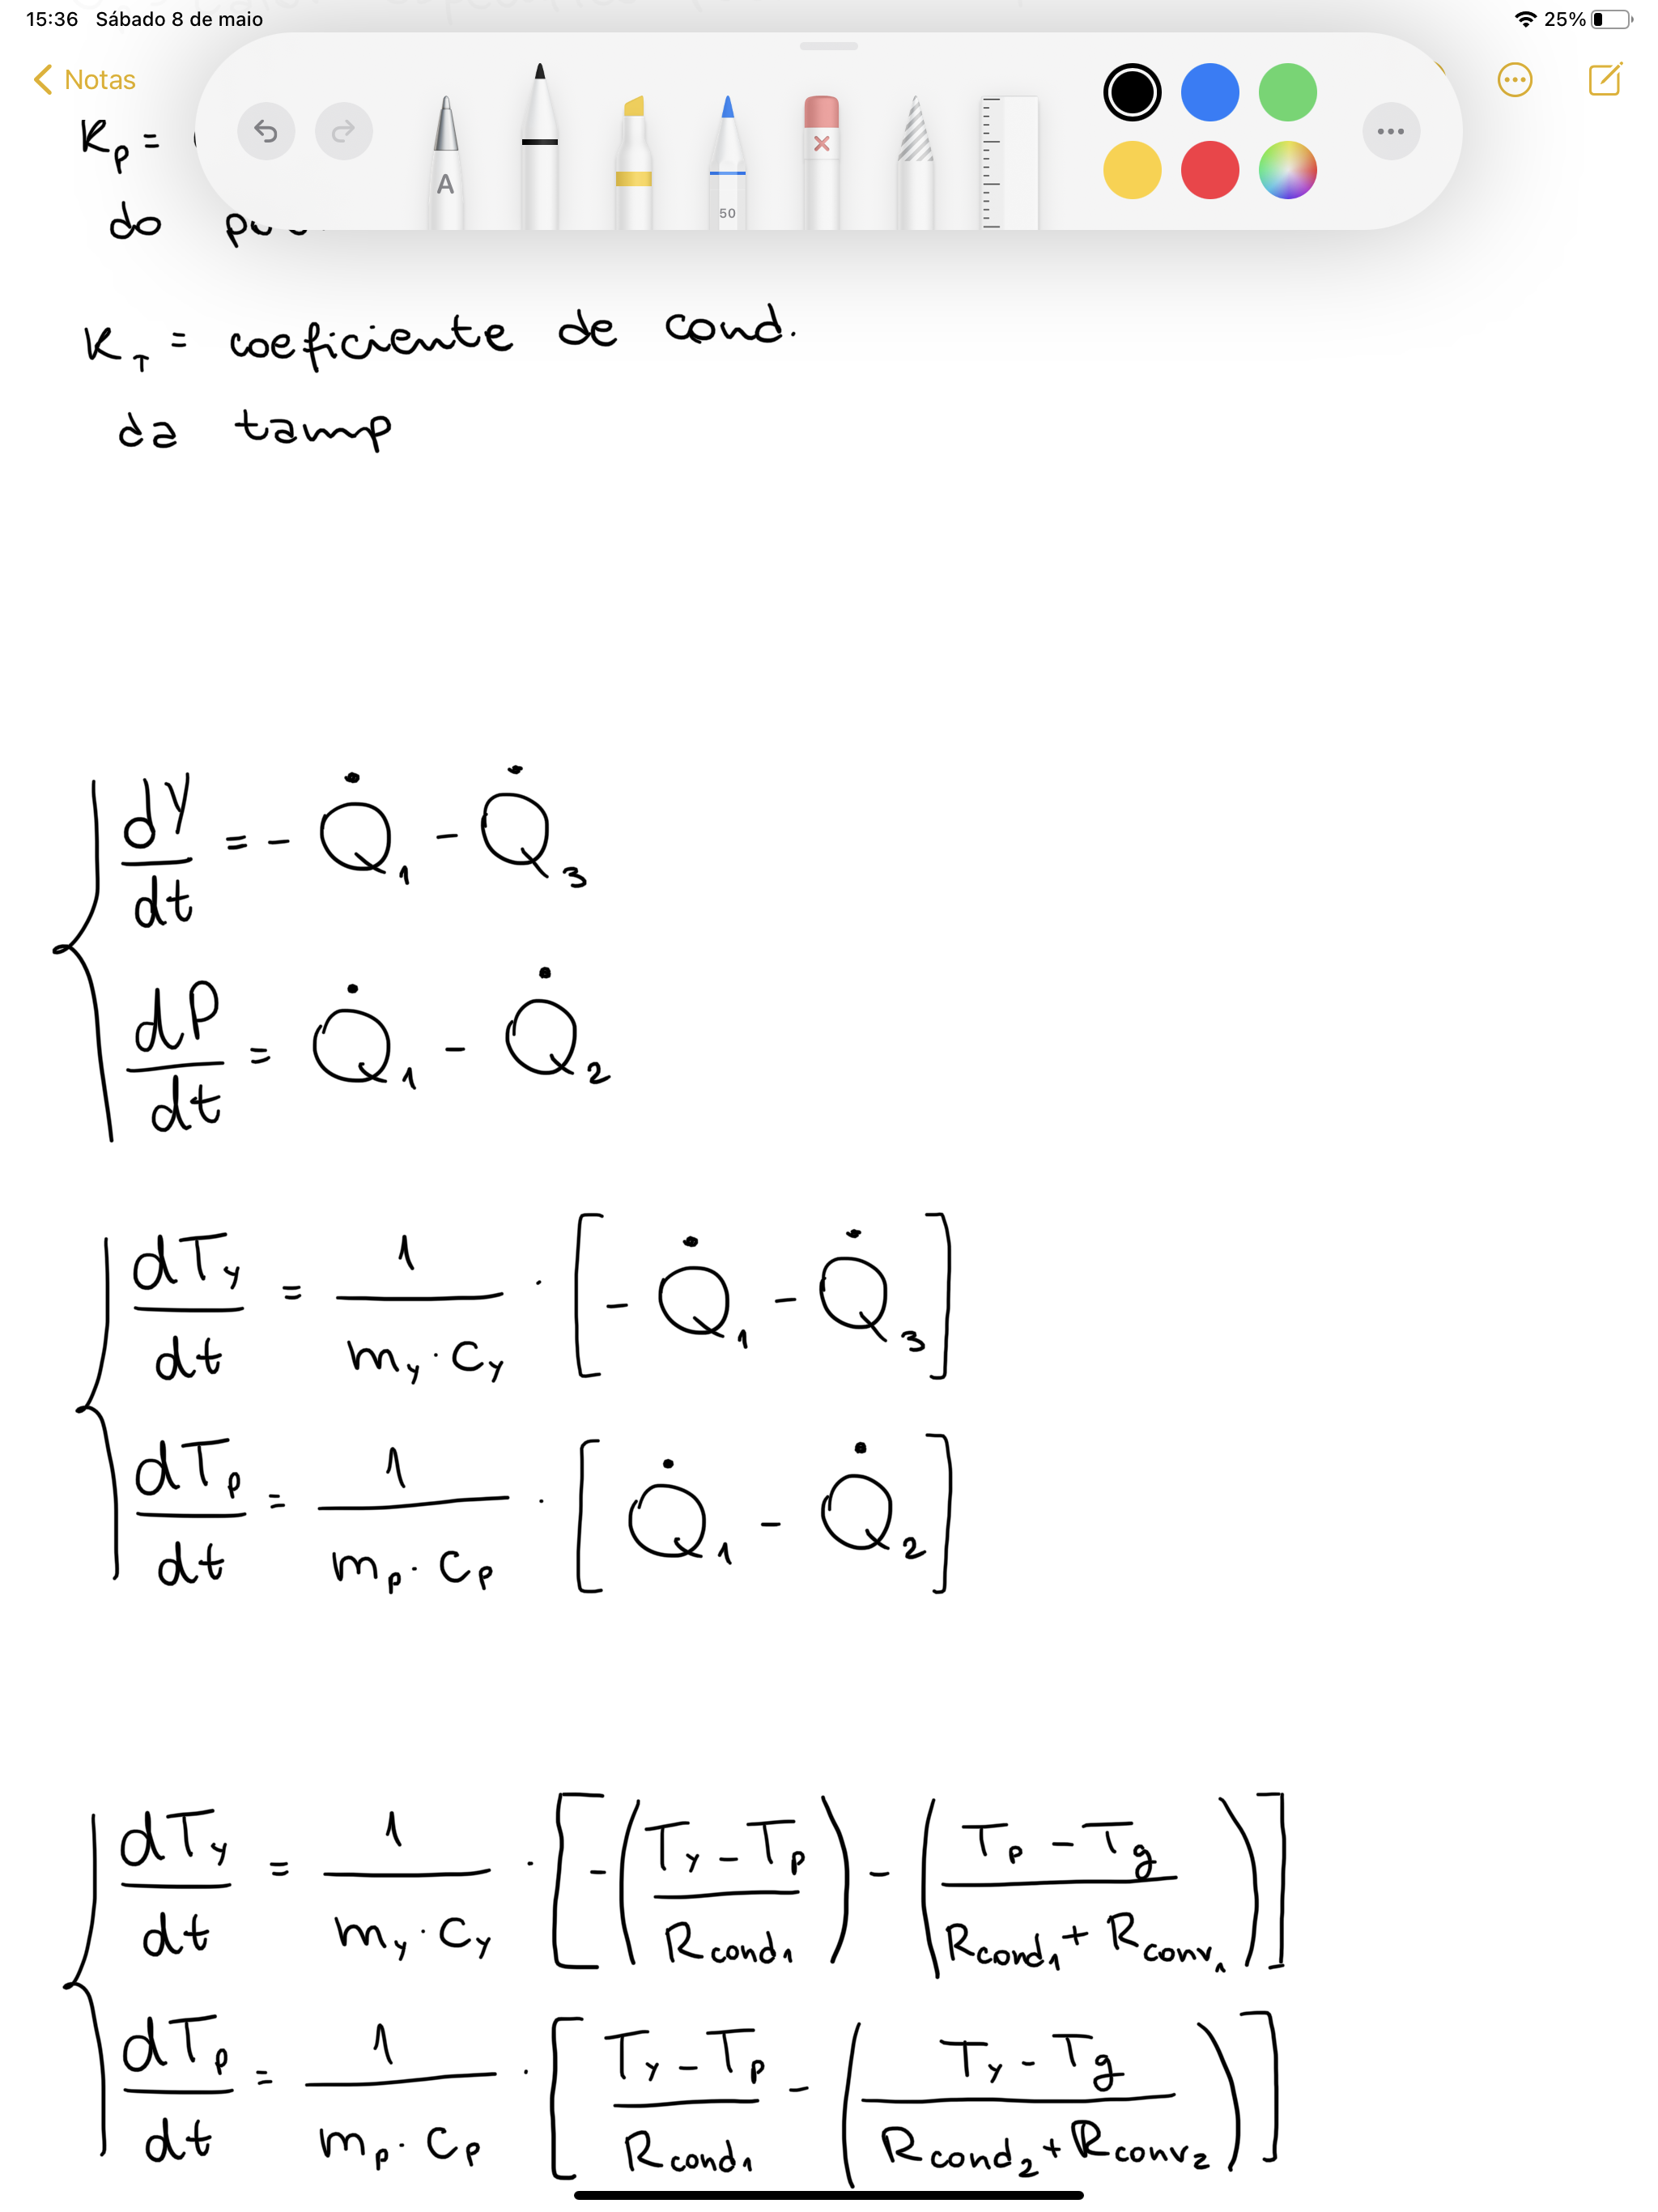 15:36 Sábado 8 de maio 25%
Notas
A
50
K_p =
do
K_T = coeficiente de cond.
da tamp
dY/dt = - Q̇_1 - Q̇_3
dP/dt = Q̇_1 - Q̇_2
dT_y/dt = 1/(m_y · c_y) · [- Q̇_1 - Q̇_3]
dT_p/dt = 1/(m_p · c_p) · [Q̇_1 - Q̇_2]
dT_y/dt = 1/(m_y · c_y) · [-((T_y - T_p)/R_cond1) - ((T_p - T_g)/(R_cond1 + R_conv1))]
dT_p/dt = 1/(m_p · c_p) · [(T_y - T_p)/R_cond1 - ((T_y - T_g)/(R_cond2 + R_conv2))]